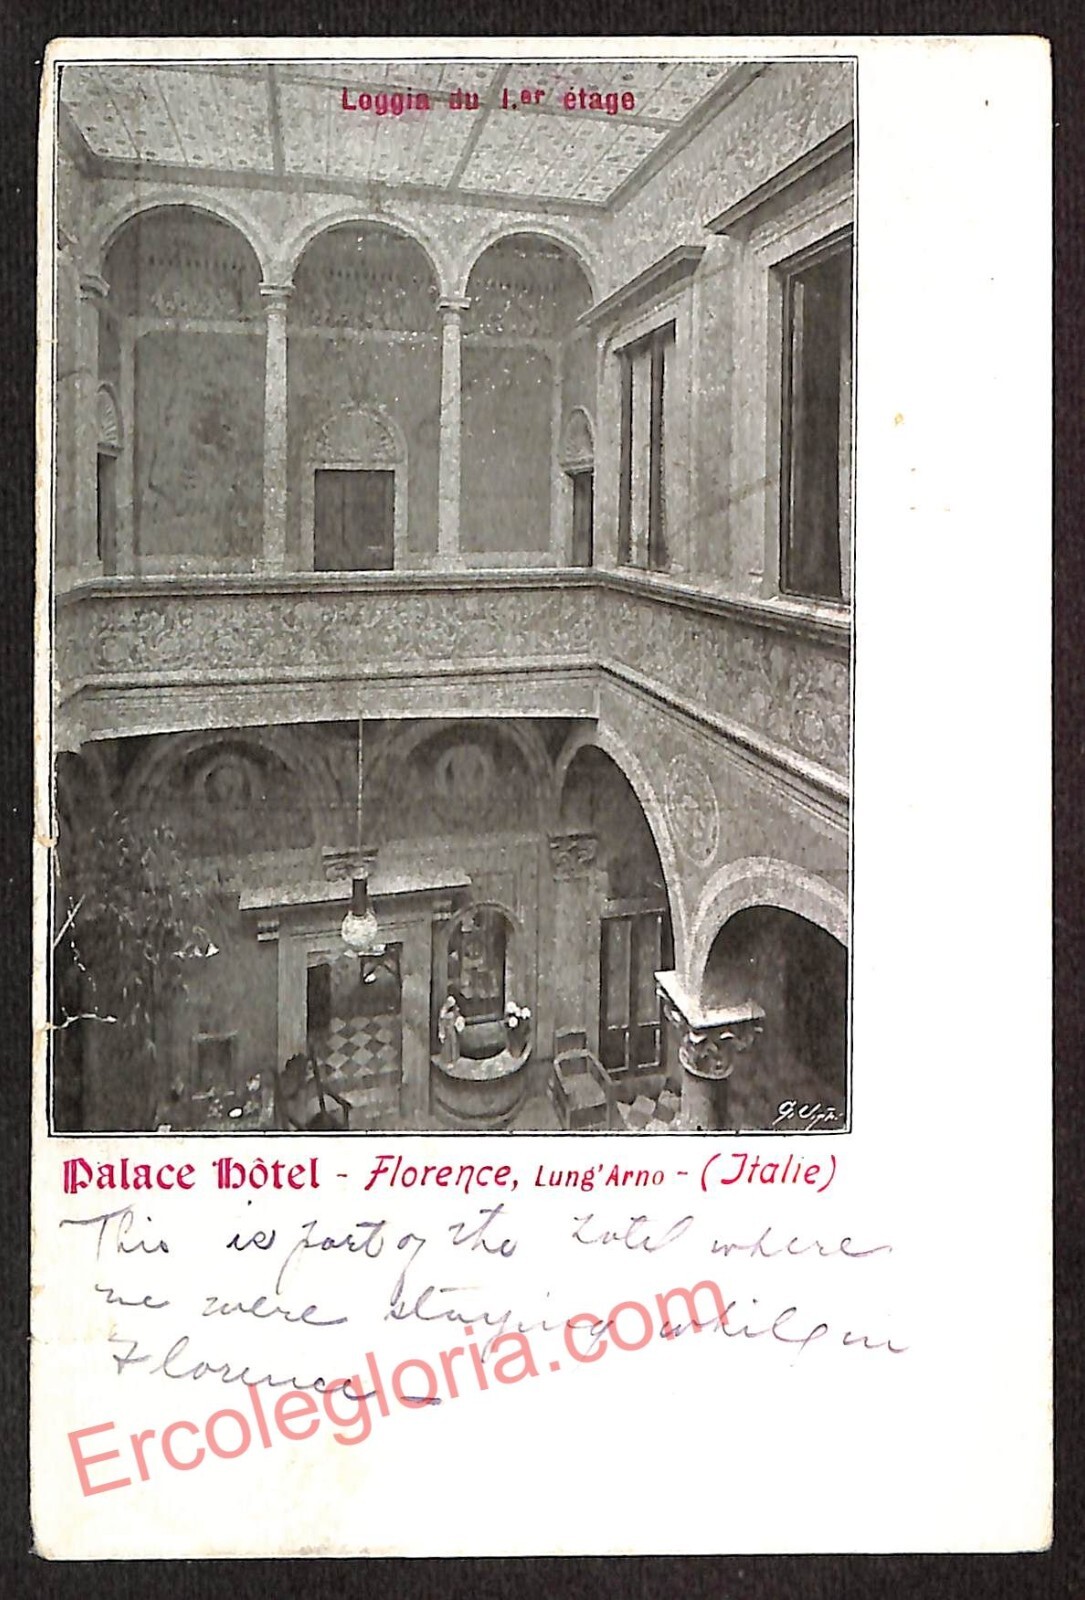 Loggia du 1.er étage
Palace Hôtel - Florence, Lung'Arno - (Italie)
This is part of the hotel where
we were staying while in
Florence —
Ercolegloria.com